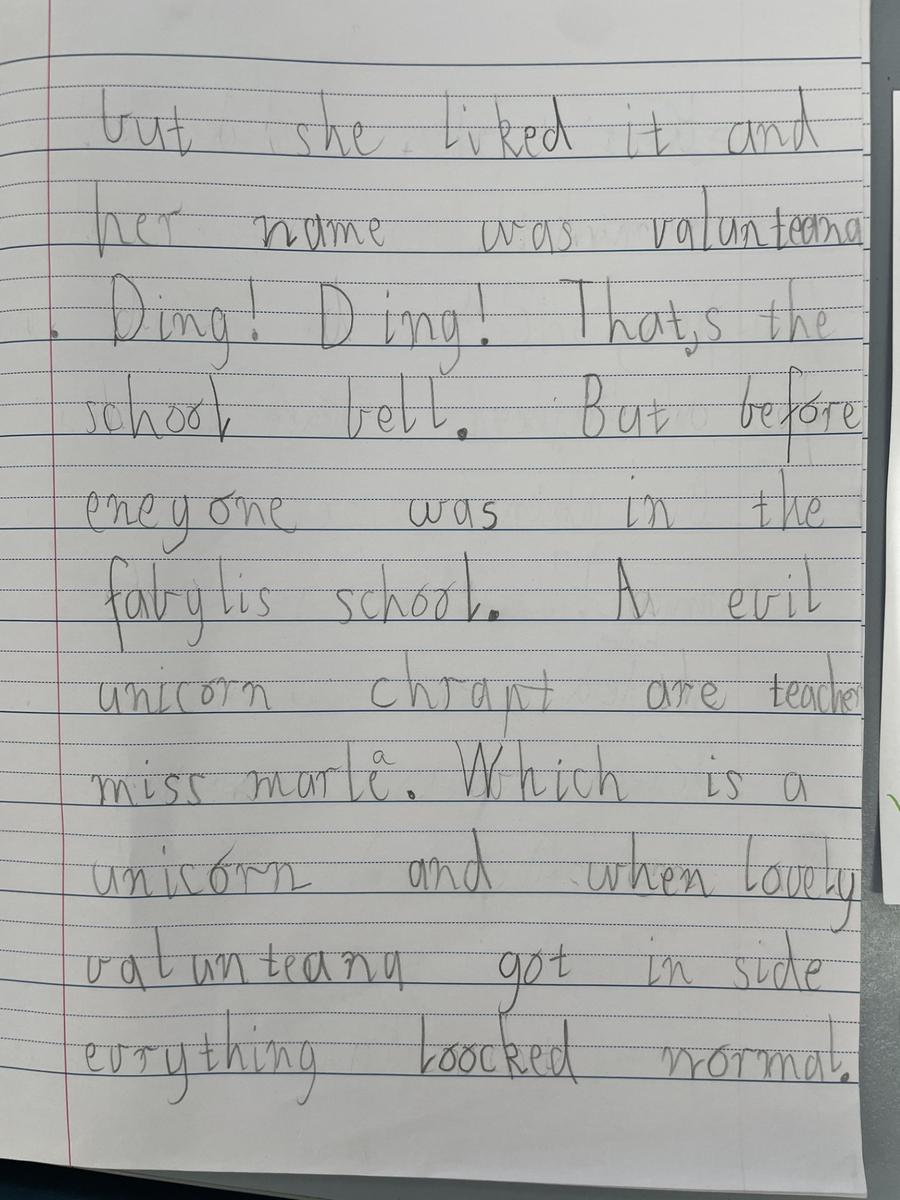 but she liked it and
her name was valunteana
. Ding! Ding! That,s the
school bell. But before
eneyone was in the
fabylis school. A evil
unicorn chrapt are teacher
miss marlea. Which is a
unicorn and when lovely
valunteana got in side
evrything loocked normal.